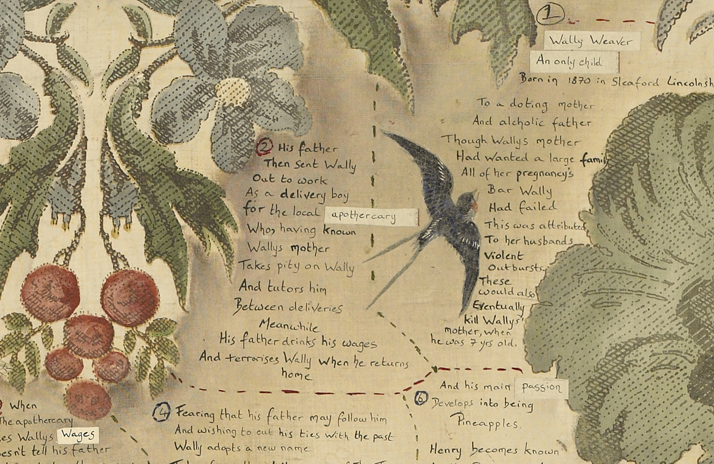 1
Wally Weaver
An only child
Born in 1870 in Sleaford Lincolnsh
To a doting mother
And alcholic father
Though Wally's mother
Had wanted a large family
All of her pregnancy's
Bar Wally
Had failed
This was attributed
To her husbands
Violent
Outbursts,
These
would also
Eventually
kill Wally's
mother, when
he was 7 yrs old.
2 His father
Then sent Wally
Out to work
As a delivery boy
for the local apothecary
Who, having known
Wallys mother
Takes pity on Wally
And tutors him
Between deliveries
Meanwhile
His father drinks his wages
And terrorises Wally when he returns
home.
When
the apothecary
es Wallys Wages
esn't tell his father
4 Fearing that his father may follow him
And wishing to cut his ties with the past
Wally adopts a new name
6 And his main passion
Develops into being
Pineapples.
Henry becomes known